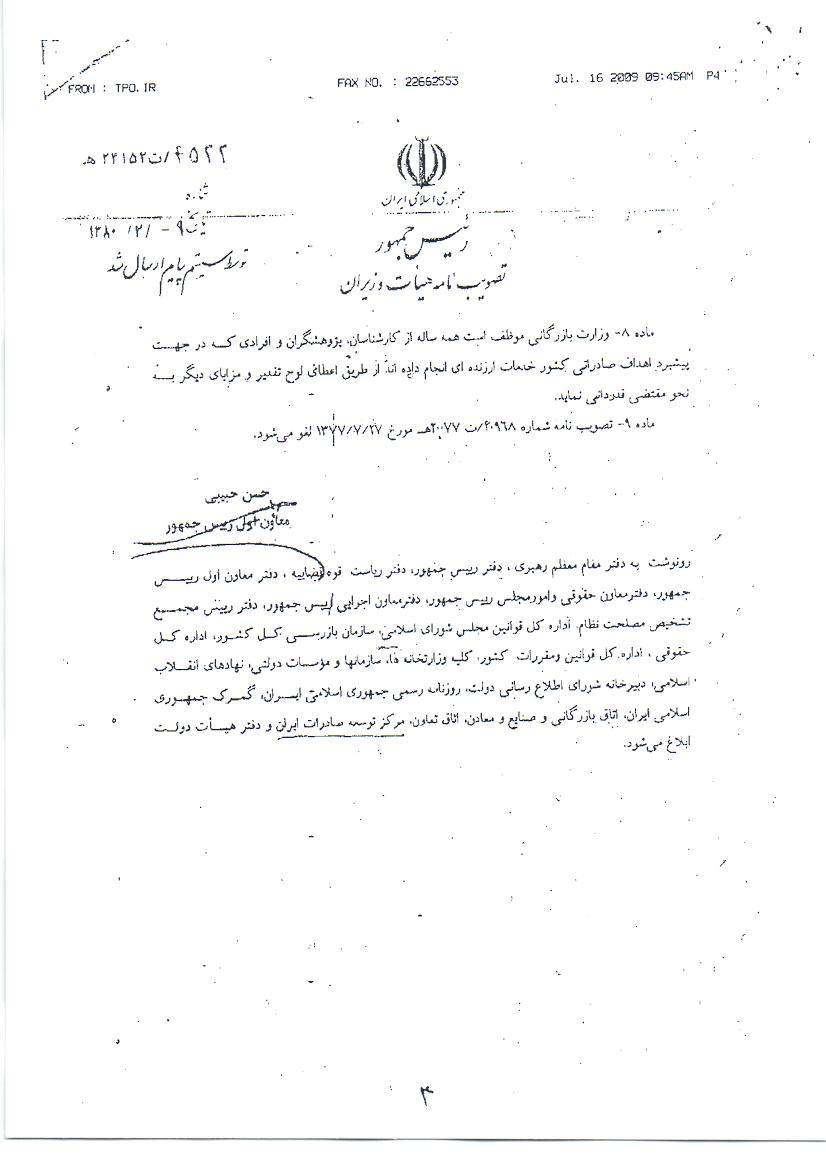 FROM : TPO.IR
FAX NO. : 22662553
Jul. 16 2009 09:45AM P4
۴۵۲۲/ت۲۲۱۵۲ ه
شماره
جمهوری اسلامی ایران
تاریخ ۹ - /۲/ ۱۳۸۰
رئیس جمهور
توسط سیستم پیام ارسال شد
تصویب نامه هیأت وزیران
ماده ۸- وزارت بازرگانی موظف است همه ساله از کارشناسان، پژوهشگران و افرادی که در جهت
پیشبرد اهداف صادراتی کشور خدمات ارزنده ای انجام داده اند از طریق اعطای لوح تقدیر و مزایای دیگر به
نحو مقتضی قدردانی نماید.
ماده ۹- تصویب نامه شماره ۲۰۹۶۸/ت ۲۰۰۷۷هـ مورخ ۱۳۷۷/۷/۲۷ لغو می‌شود.
حسن حبیبی
معاون اول رییس جمهور
رونوشت به دفتر مقام معظم رهبری ، دفتر رییس جمهور، دفتر ریاست قوه قضاییه ، دفتر معاون اول رییس
جمهور، دفترمعاون حقوقی وامورمجلس رییس جمهور، دفترمعاون اجرایی رییس جمهور، دفتر رییس مجمع
تشخیص مصلحت نظام، اداره کل قوانین مجلس شورای اسلامی، سازمان بازرسی کل کشور، اداره کل
حقوقی ، اداره کل قوانین ومقررات کشور، کلیه وزارتخانه ها، سازمانها و مؤسسات دولتی، نهادهای انقلاب
اسلامی، دبیرخانه شورای اطلاع رسانی دولت، روزنامه رسمی جمهوری اسلامی ایران، گمرک جمهوری
اسلامی ایران، اتاق بازرگانی و صنایع و معادن، اتاق تعاون، مرکز توسعه صادرات ایران و دفتر هیأت دولت
ابلاغ می‌شود.
۳